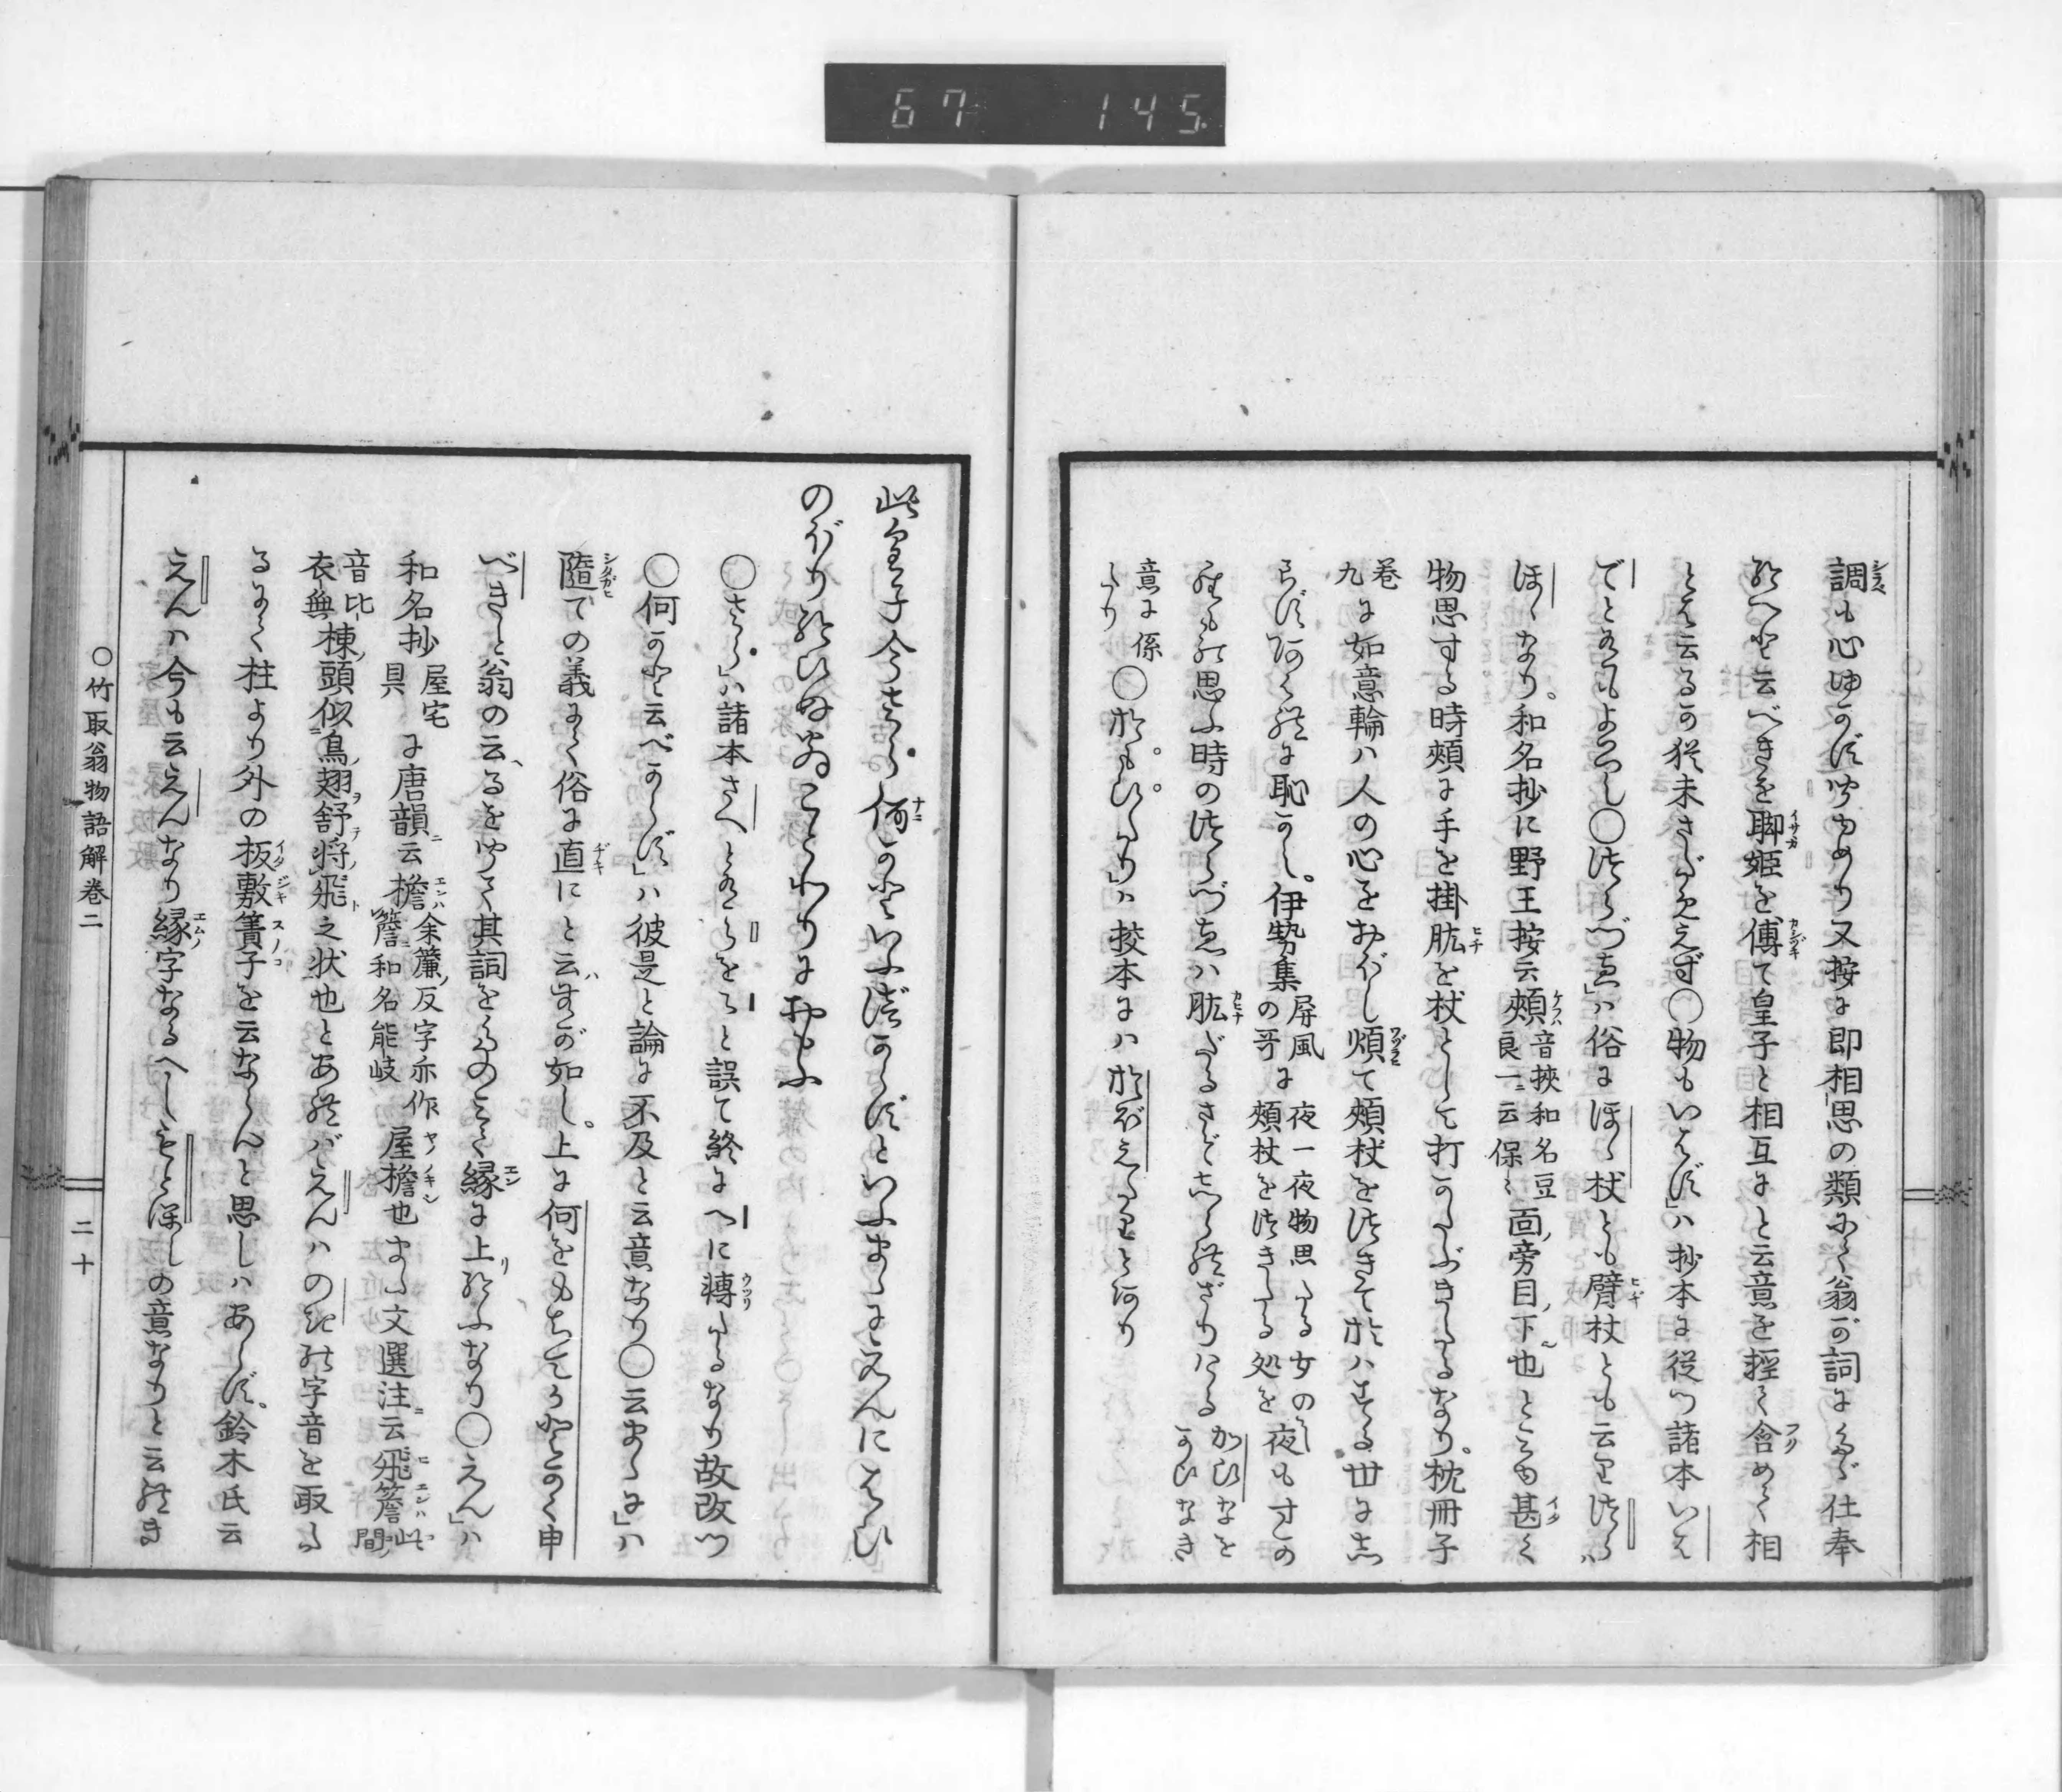 67 145
調も心ゆかず聞ゆめり又按に即相思の類にて翁が詞にくらゞ仕奉
給へど云べきを聊姫を傅て皇子と相互にと云意を軽く含めて相
とは云るか猶未さだめえず○物もいはず」ハ抄本に従つ諸本いは
でとあるもよろし○つらづゑ」ハ俗にほゝ杖とも臂杖とも云里つらハ
ほゝなり。和名抄に野王按云頰音挾和名豆良一云保々面旁目下也とみゆ甚く
物思する時頰に手を掛肱を杖として打かたぶきたるなり。枕冊子
巻九に如意輪ハ人の心をおぼし煩て頰杖をつきておはする世にしらずあはれに恥かし。伊勢集屏風の哥に夜一夜物思たる女の頰杖をつきたる処を夜もすがら
物思ふ時のつらづゑハ肱だるさぞしられざりけるかひなをかひなき
意に係たり○おもひたり」ハ挍本にハおぼえたりとあり
此皇子今さら何かといふべからずといふまゝにえんにはひ
のぼり給ひぬ翁ことわりにおもふ
○さら」ハ諸本さへとあるらをえと誤て終にへに轉たるなり故改つ
○何かと云べからず」ハ彼是と論に不及と云意なり○云まゝに」ハ
隨ての義にて俗に直にと云が如し。上に何をもちてかとかく申
べきと翁の云るを聞て其詞を縁に上給ふなり○えん」ハ
和名抄屋宅具に唐韻云檐余簾反字亦作簷和名能岐屋檐也また文選注云飛簷此間
音比衣無棟頭似鳥翅舒将飛之状也とあればえんハのきの字音を取た
るにて柱より外の板敷簀子を云ならんと思しハあらず。鈴木氏云
えんハ今も云えんなり縁字なるへしもとほしの意なりと云れき
○竹取翁物語解巻二
二十